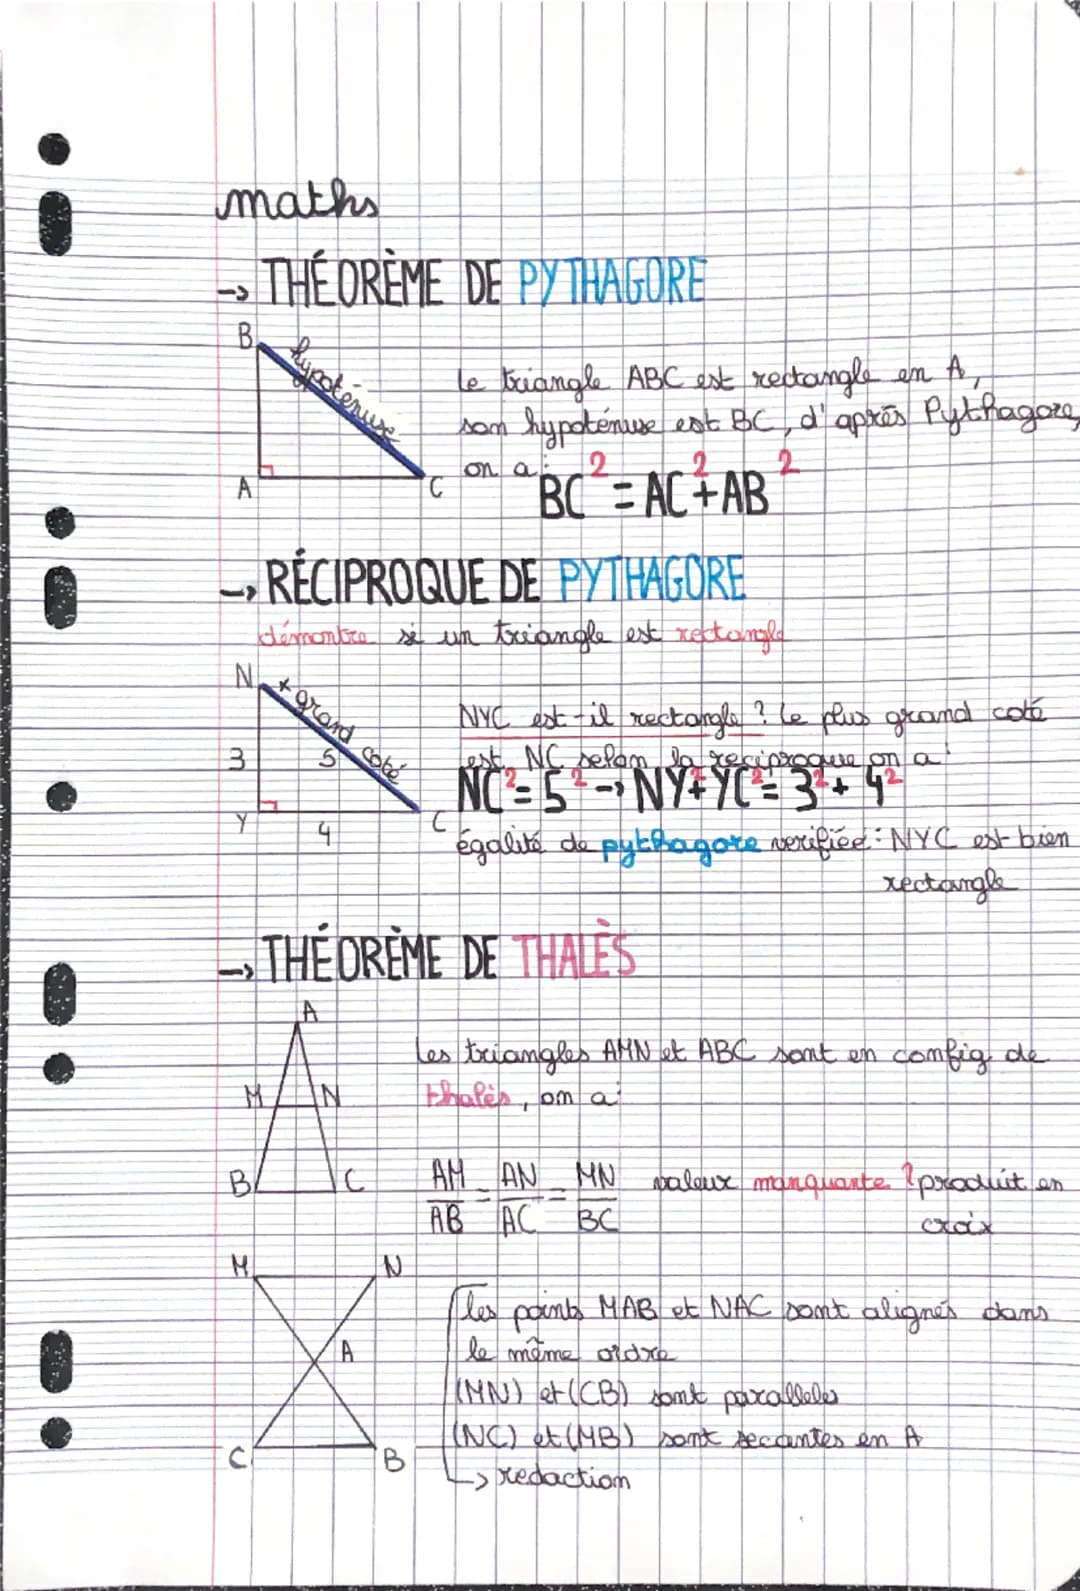 maths
→ THÉORÈME DE PYTHAGORE
B
hypoténuse
A
C
le triangle ABC est rectangle en A,
son hypoténuse est BC, d'après Pythagore,
on a:
BC² = AC² + AB²
→ RÉCIPROQUE DE PYTHAGORE
démontre si un triangle est rectangle
N
+ grand coté
3
5
Y
4
C
NYC est-il rectangle ? Le plus grand coté
est NC selon la reciproque on a:
NC² = 5² → NY² + YC² = 3² + 4²
égalité de pythagore verifiée : NYC est bien
rectangle
→ THÉORÈME DE THALÈS
A
M
N
B
C
les triangles AMN et ABC sont en config de
thalès, on a:
AM/AB = AN/AC = MN/BC valeur manquante ? produit en
croix
M
N
A
C
B
les points MAB et NAC sont alignés dans
le même ordre
(MN) et (CB) sont paralleles
(NC) et (MB) sont secantes en A
↳ redaction